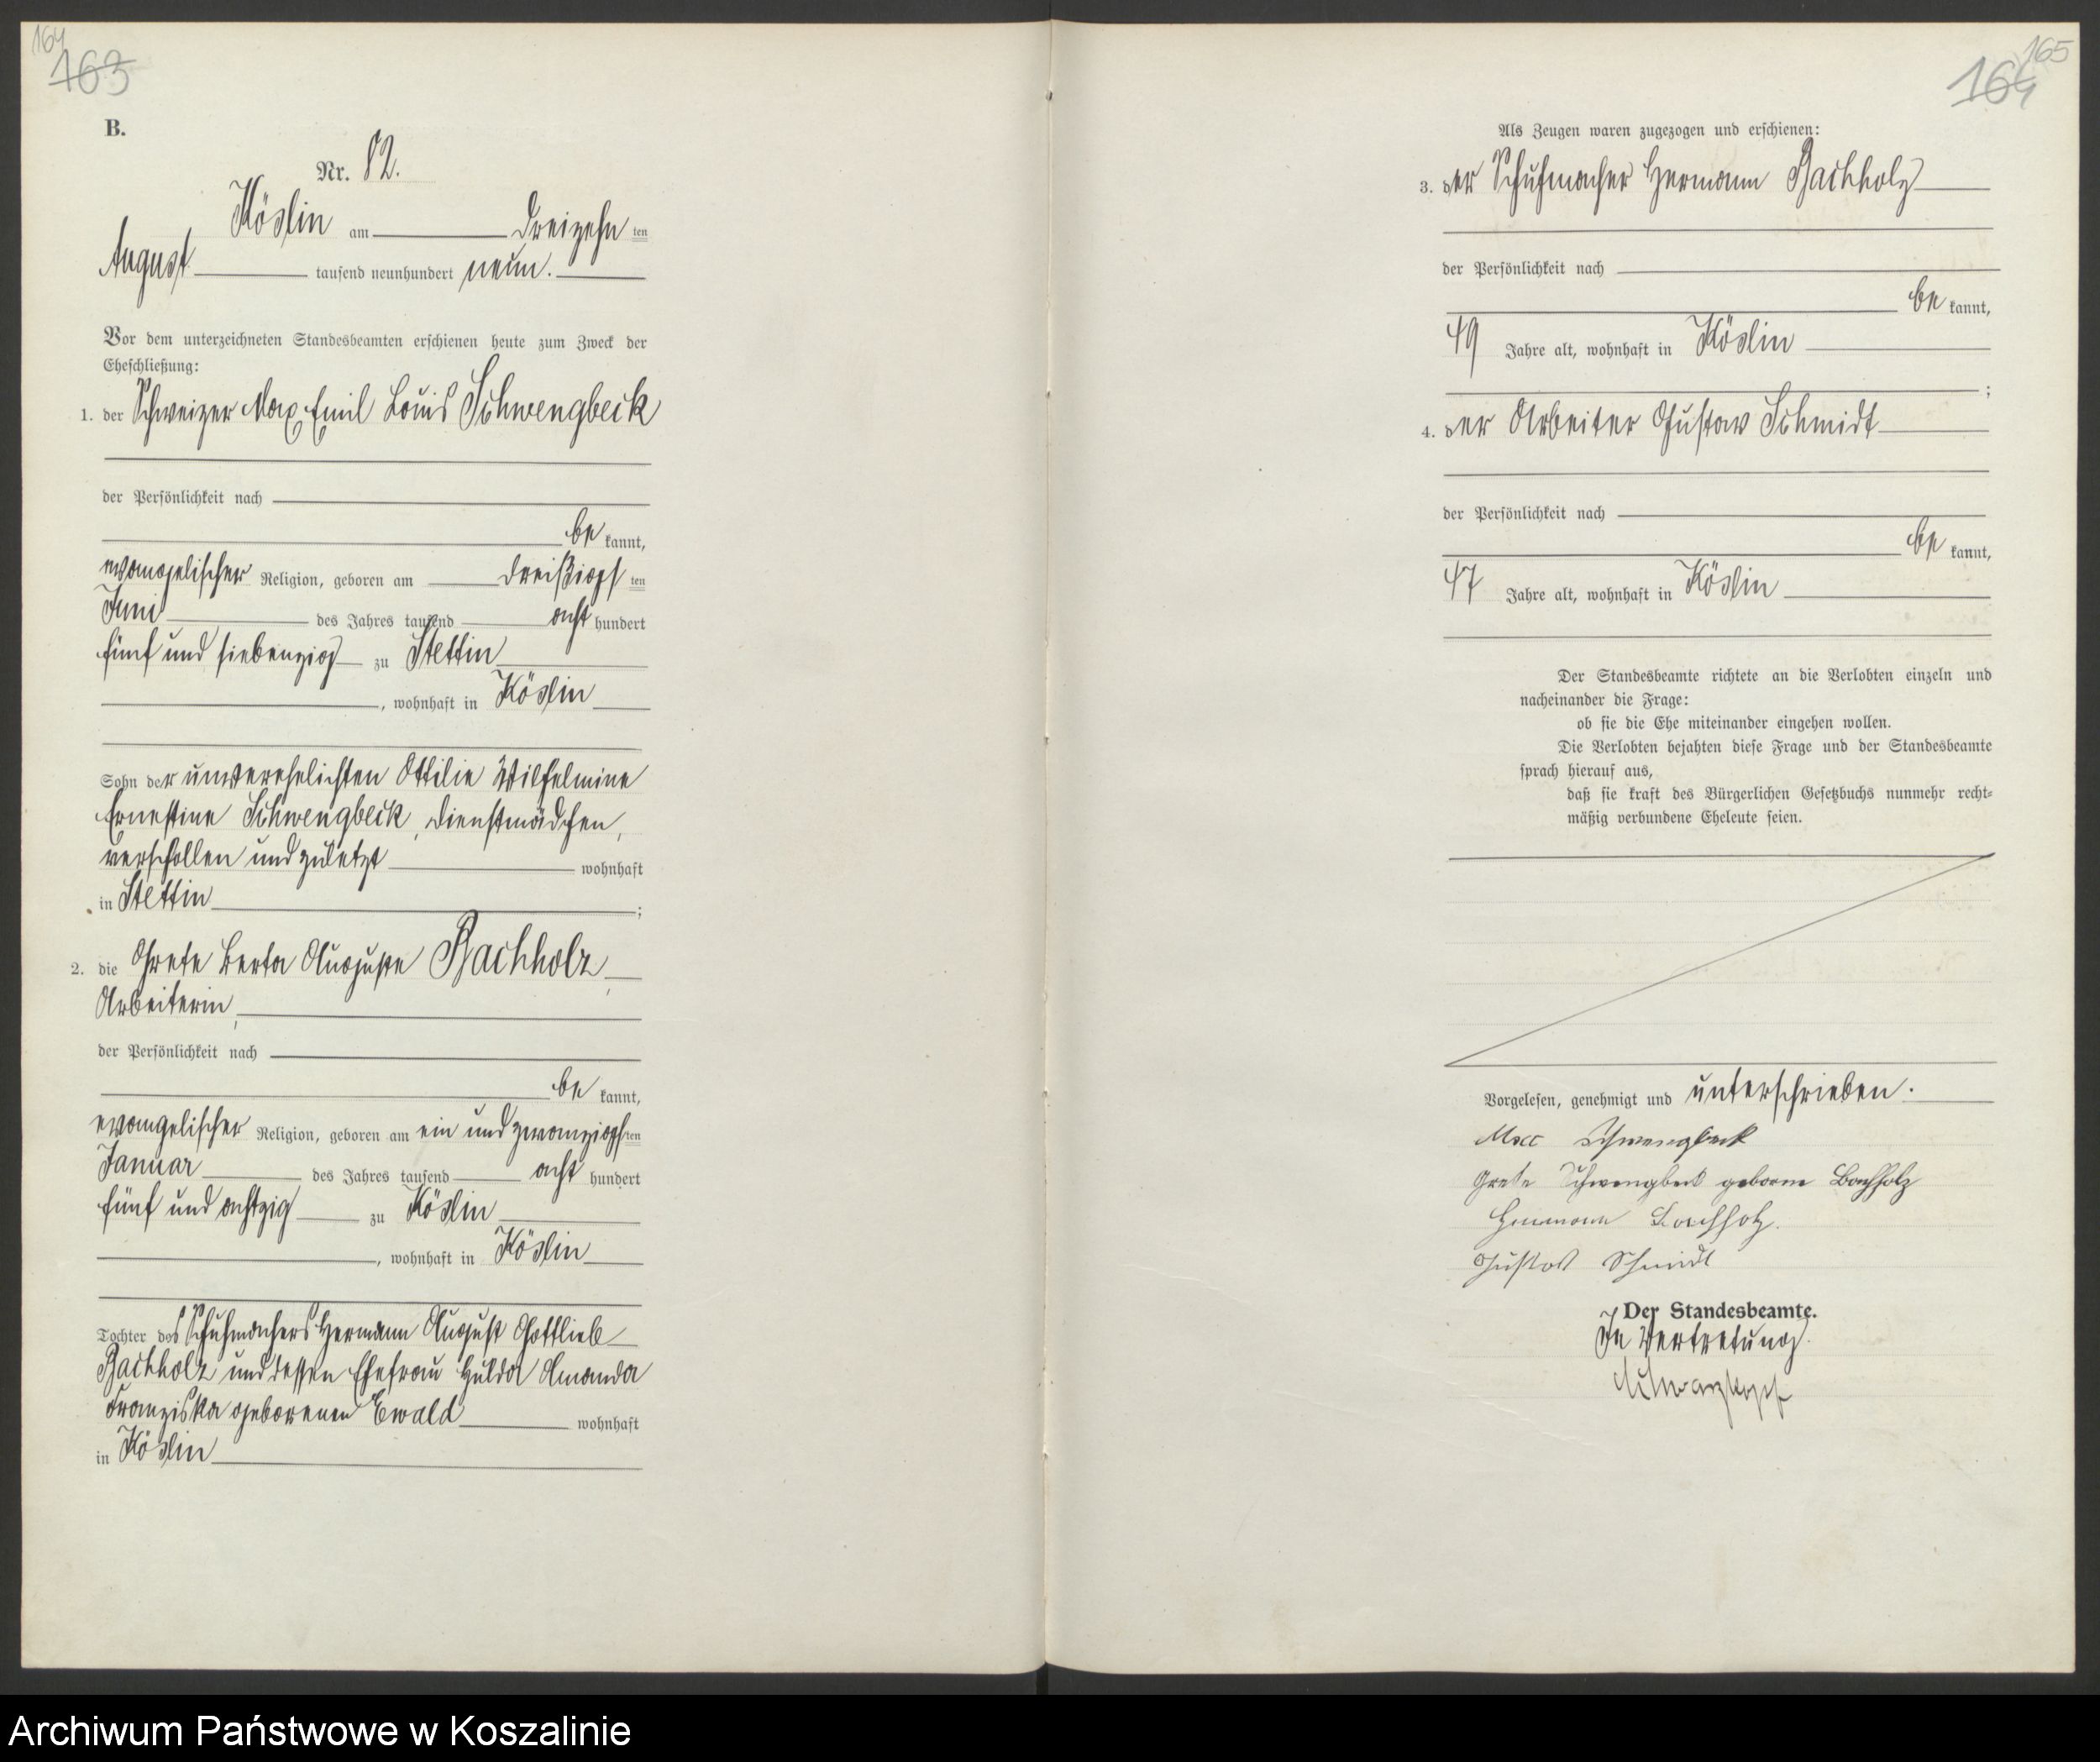 164
163
B.
Nr. 82.
Köslin am dreizehn ten
August tausend neunhundert neun.
Vor dem unterzeichneten Standesbeamten erschienen heute zum Zweck der
Eheschließung:
1. der Schweizer Max Emil Louis Schwengbeck
der Persönlichkeit nach
be kannt,
evangelischer Religion, geboren am dreißigst ten
Juni des Jahres tausend acht hundert
fünf und siebenzig zu Stettin
, wohnhaft in Köslin
Sohn der unverehelichten Ottilie Wilhelmine
Ernestine Schwengbeck, Dienstmädchen,
verschollen und zuletzt wohnhaft
in Stettin ;
2. die Grete Berta Auguste Bachholz,
Arbeiterin,
der Persönlichkeit nach
be kannt,
evangelischer Religion, geboren am ein und zwanzigsten
Januar des Jahres tausend acht hundert
fünf und achtzig zu Köslin
, wohnhaft in Köslin
Tochter des Schuhmachers Hermann August Gottlieb
Bachholz und dessen Ehefrau Hulda Amanda
Franziska geborenen Ewald wohnhaft
in Köslin
165
164
Als Zeugen waren zugezogen und erschienen:
3. der Schuhmacher Hermann Bachholz
der Persönlichkeit nach
be kannt,
49 Jahre alt, wohnhaft in Köslin
;
4. der Arbeiter Gustav Schmidt
der Persönlichkeit nach
be kannt,
47 Jahre alt, wohnhaft in Köslin
Der Standesbeamte richtete an die Verlobten einzeln und
nacheinander die Frage:
ob sie die Ehe miteinander eingehen wollen.
Die Verlobten bejahten diese Frage und der Standesbeamte
sprach hierauf aus,
daß sie kraft des Bürgerlichen Gesetzbuchs nunmehr recht-
mäßig verbundene Eheleute seien.
Vorgelesen, genehmigt und unterschrieben.
Max Schwengbeck
Grete Schwengbeck geborne Bachholz
Hermann Bachholz.
Gustav Schmidt
Der Standesbeamte.
In Vertretung.
Schwarzkopf
Archiwum Państwowe w Koszalinie